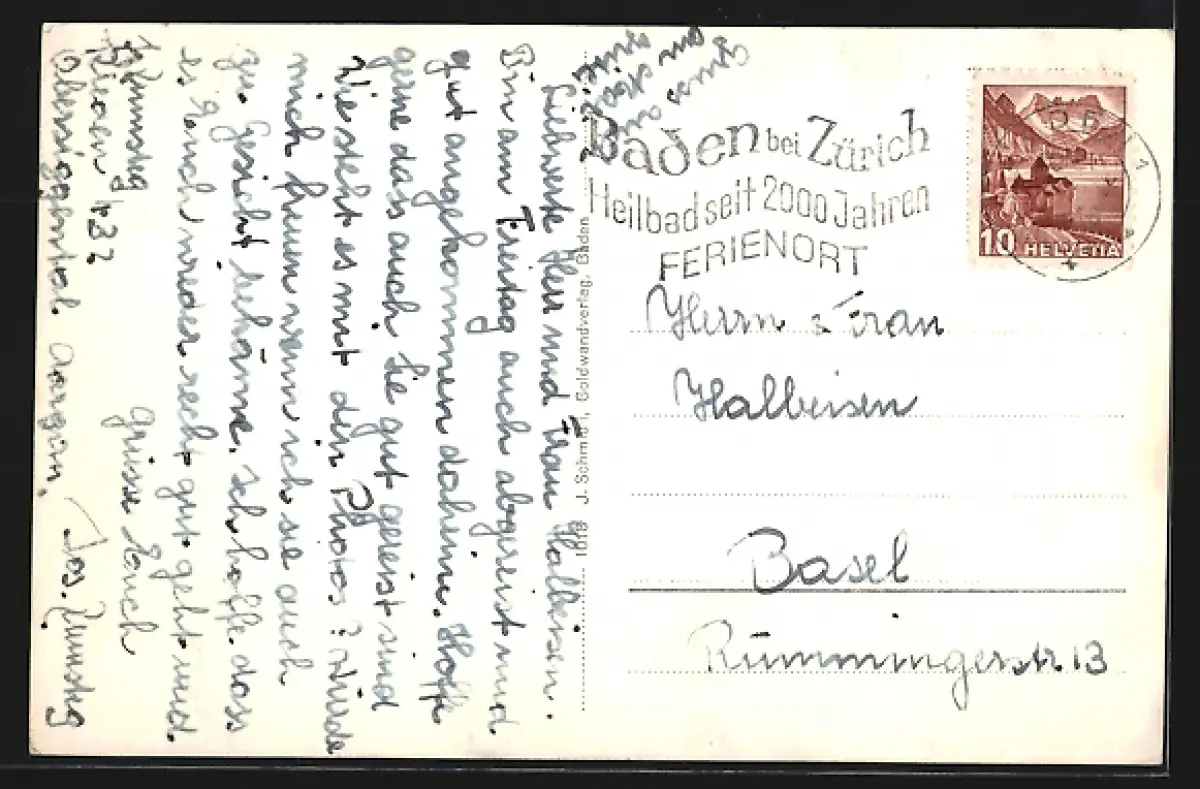 Liebwerte Herr und Frau Halbeisen.
Bin am Freitag auch abgereist und
gut angekommen daheim. Hoffe
gerne dass auch Sie gut gereist sind
Wie steht es mit den Photos? Würde
mich freuen wenn ich sie auch
zu Gesicht bekäme. Ich hoffe dass
es Euch wieder recht gut geht und
grüsse Euch
Jos. Zumsteg
J. Zumsteg
432
Obersiggental Aargau.
1018 J. Schmidt, Goldwandverlag, Baden
Baden bei Zürich
Heilbad seit 2000 Jahren
FERIENORT
10 HELVETIA
Herrn & Frau
Halbeisen
Basel
Rümmingerstr 13